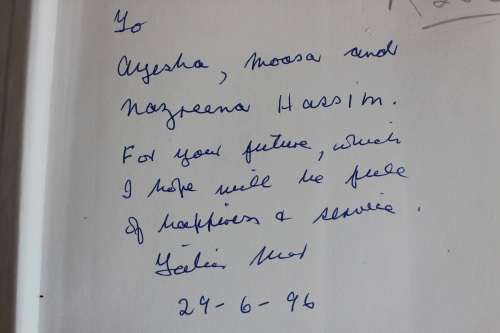 To
Ayesha, Moosa and
Nazreena Hassim.
For your future, which
I hope will be full
of happiness & service.
Fatima
24-6-96